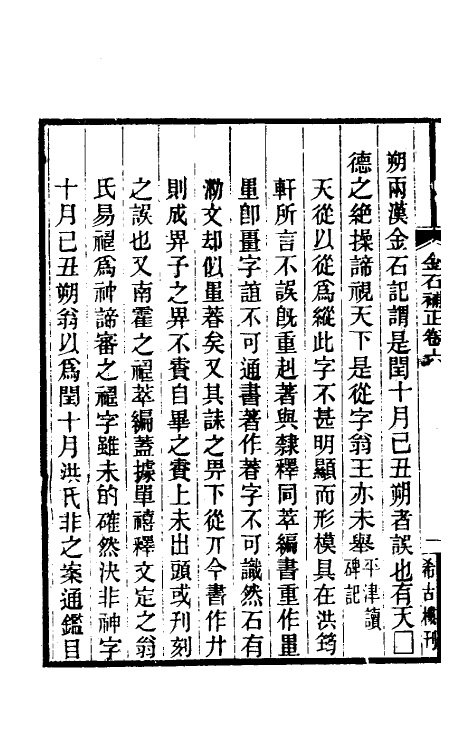 金石補正卷六
一
希古樓刊
朔兩漢金石記謂是閏十月己丑朔者誤也有天□
德之絕操諦視天下是從字翁王亦未舉平津讀碑記
天從以從爲縱此字不甚明顯而形模具在洪筠
軒所言不誤既重赳著與隸釋同萃編書重作畺
畺卽畺字誼不可通書著作蓍字不可識然石有
泐文却似畺蓍矣又其誄之畀下從丌今書作廾
則成畀子之畀不賫自畢之賫上未出頭或刋刻
之誤也又南霍之禋萃編蓋據單禧釋文定之翁
氏易禋爲神諦審之禋字雖未的確然決非神字
十月己丑朔翁以爲閏十月洪氏非之案通鑑目